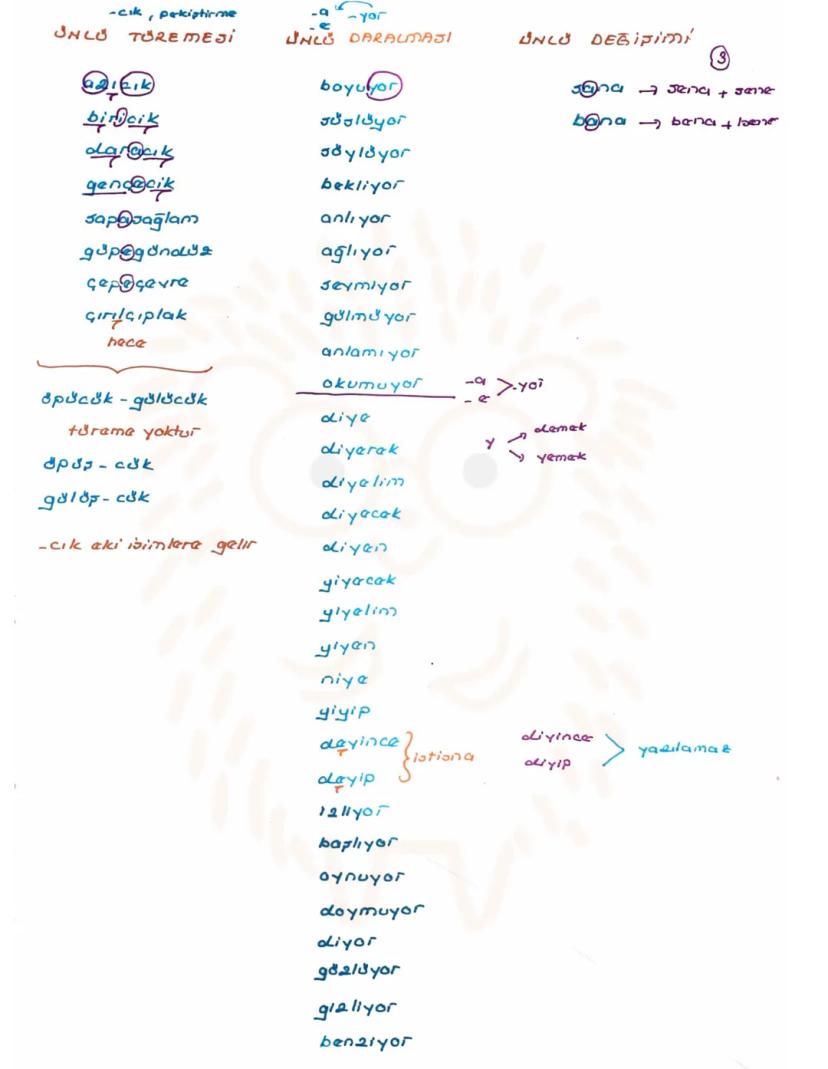 -cık, pekiştirme
ÜNLÜ TÜREMESİ
azıcık
biricik
daracık
gencecik
sapasağlam
güpegündüz
çepeçevre
çırılçıplak
hece
öpücük - gülücük
türeme yoktur
öpüş - cük
gülüş - cük
-cık eki isimlere gelir
-a -yor
-e
ÜNLÜ DARALMASI
boyuyor
süslüyor
söylüyor
bekliyor
anlıyor
ağlıyor
sevmiyor
gülmüyor
anlamıyor
okumuyor
-a > -yor
-e
diye
diyerek
y demek
yemek
diyelim
diyecek
diyen
yiyecek
yiyelim
yiyen
niye
yiyip
deyince
deyip
istisna
diyince
diyip
yazılamaz
izliyor
başlıyor
oynuyor
doymuyor
diyor
gözlüyor
gizliyor
benziyor
ÜNLÜ DEĞİŞİMİ
3
sana → sana + sene
bana → bana + bene